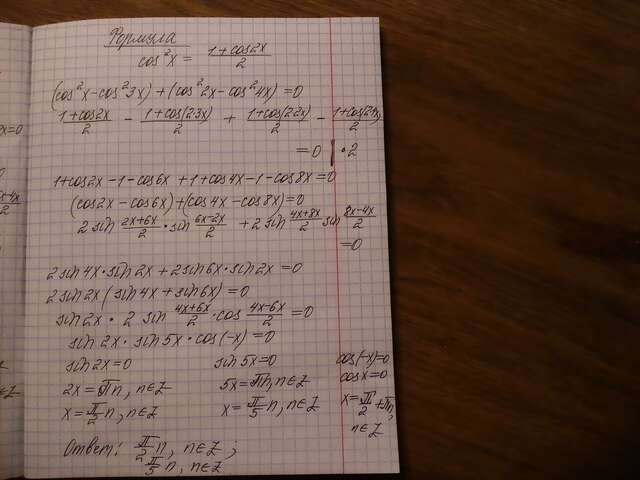 Формула
cos²x = (1+cos2x)/2
(cos²x-cos²3x)+(cos²2x-cos²4x)=0
(1+cos2x)/2 - (1+cos(2·3x))/2 + (1+cos(2·2x))/2 - (1+cos(2·4x))/2
=0 | ·2
1+cos2x-1-cos6x+1+cos4x-1-cos8x=0
(cos2x-cos6x)+(cos4x-cos8x)=0
2 sin (2x+6x)/2 · sin (6x-2x)/2 + 2 sin (4x+8x)/2 sin (8x-4x)/2
=0
2 sin4x·sin2x+2sin6x·sin2x=0
2 sin2x(sin4x+sin6x)=0
sin2x · 2 sin (4x+6x)/2 · cos (4x-6x)/2 =0
sin2x·sin5x·cos(-x)=0
sin2x=0 sin5x=0 cos(-x)=0
cosx=0
2x=πn, n∈Z 5x=πn, n∈Z
x=π/2 n, n∈Z x=π/5 n, n∈Z x=π/2+πn,
n∈Z
Ответ: π/2 n, n∈Z;
π/5 n, n∈Z